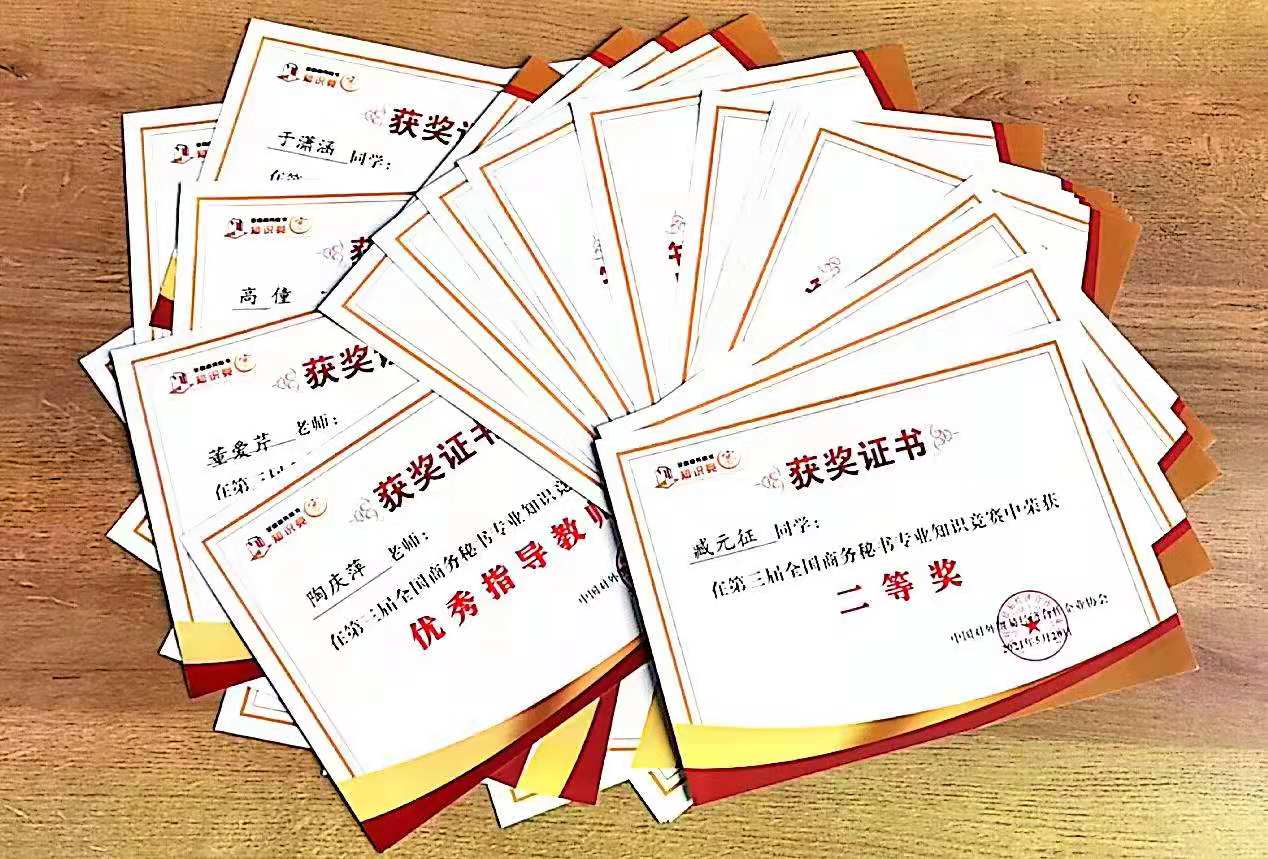 知识竞
获奖证
于潇涵 同学：
在第
知识竞
获
高僮
知识竞
获奖证
董爱芹 老师：
在第三届
知识竞
获奖证书
陶庆萍 老师：
在第三届全国商务秘书专业知识竞
优秀指导教师
中国对外
知识竞
获奖证书
臧元征 同学：
在第三届全国商务秘书专业知识竞赛中荣获
二等奖
中国对外贸易经济合作企业协会
2021年5月20日